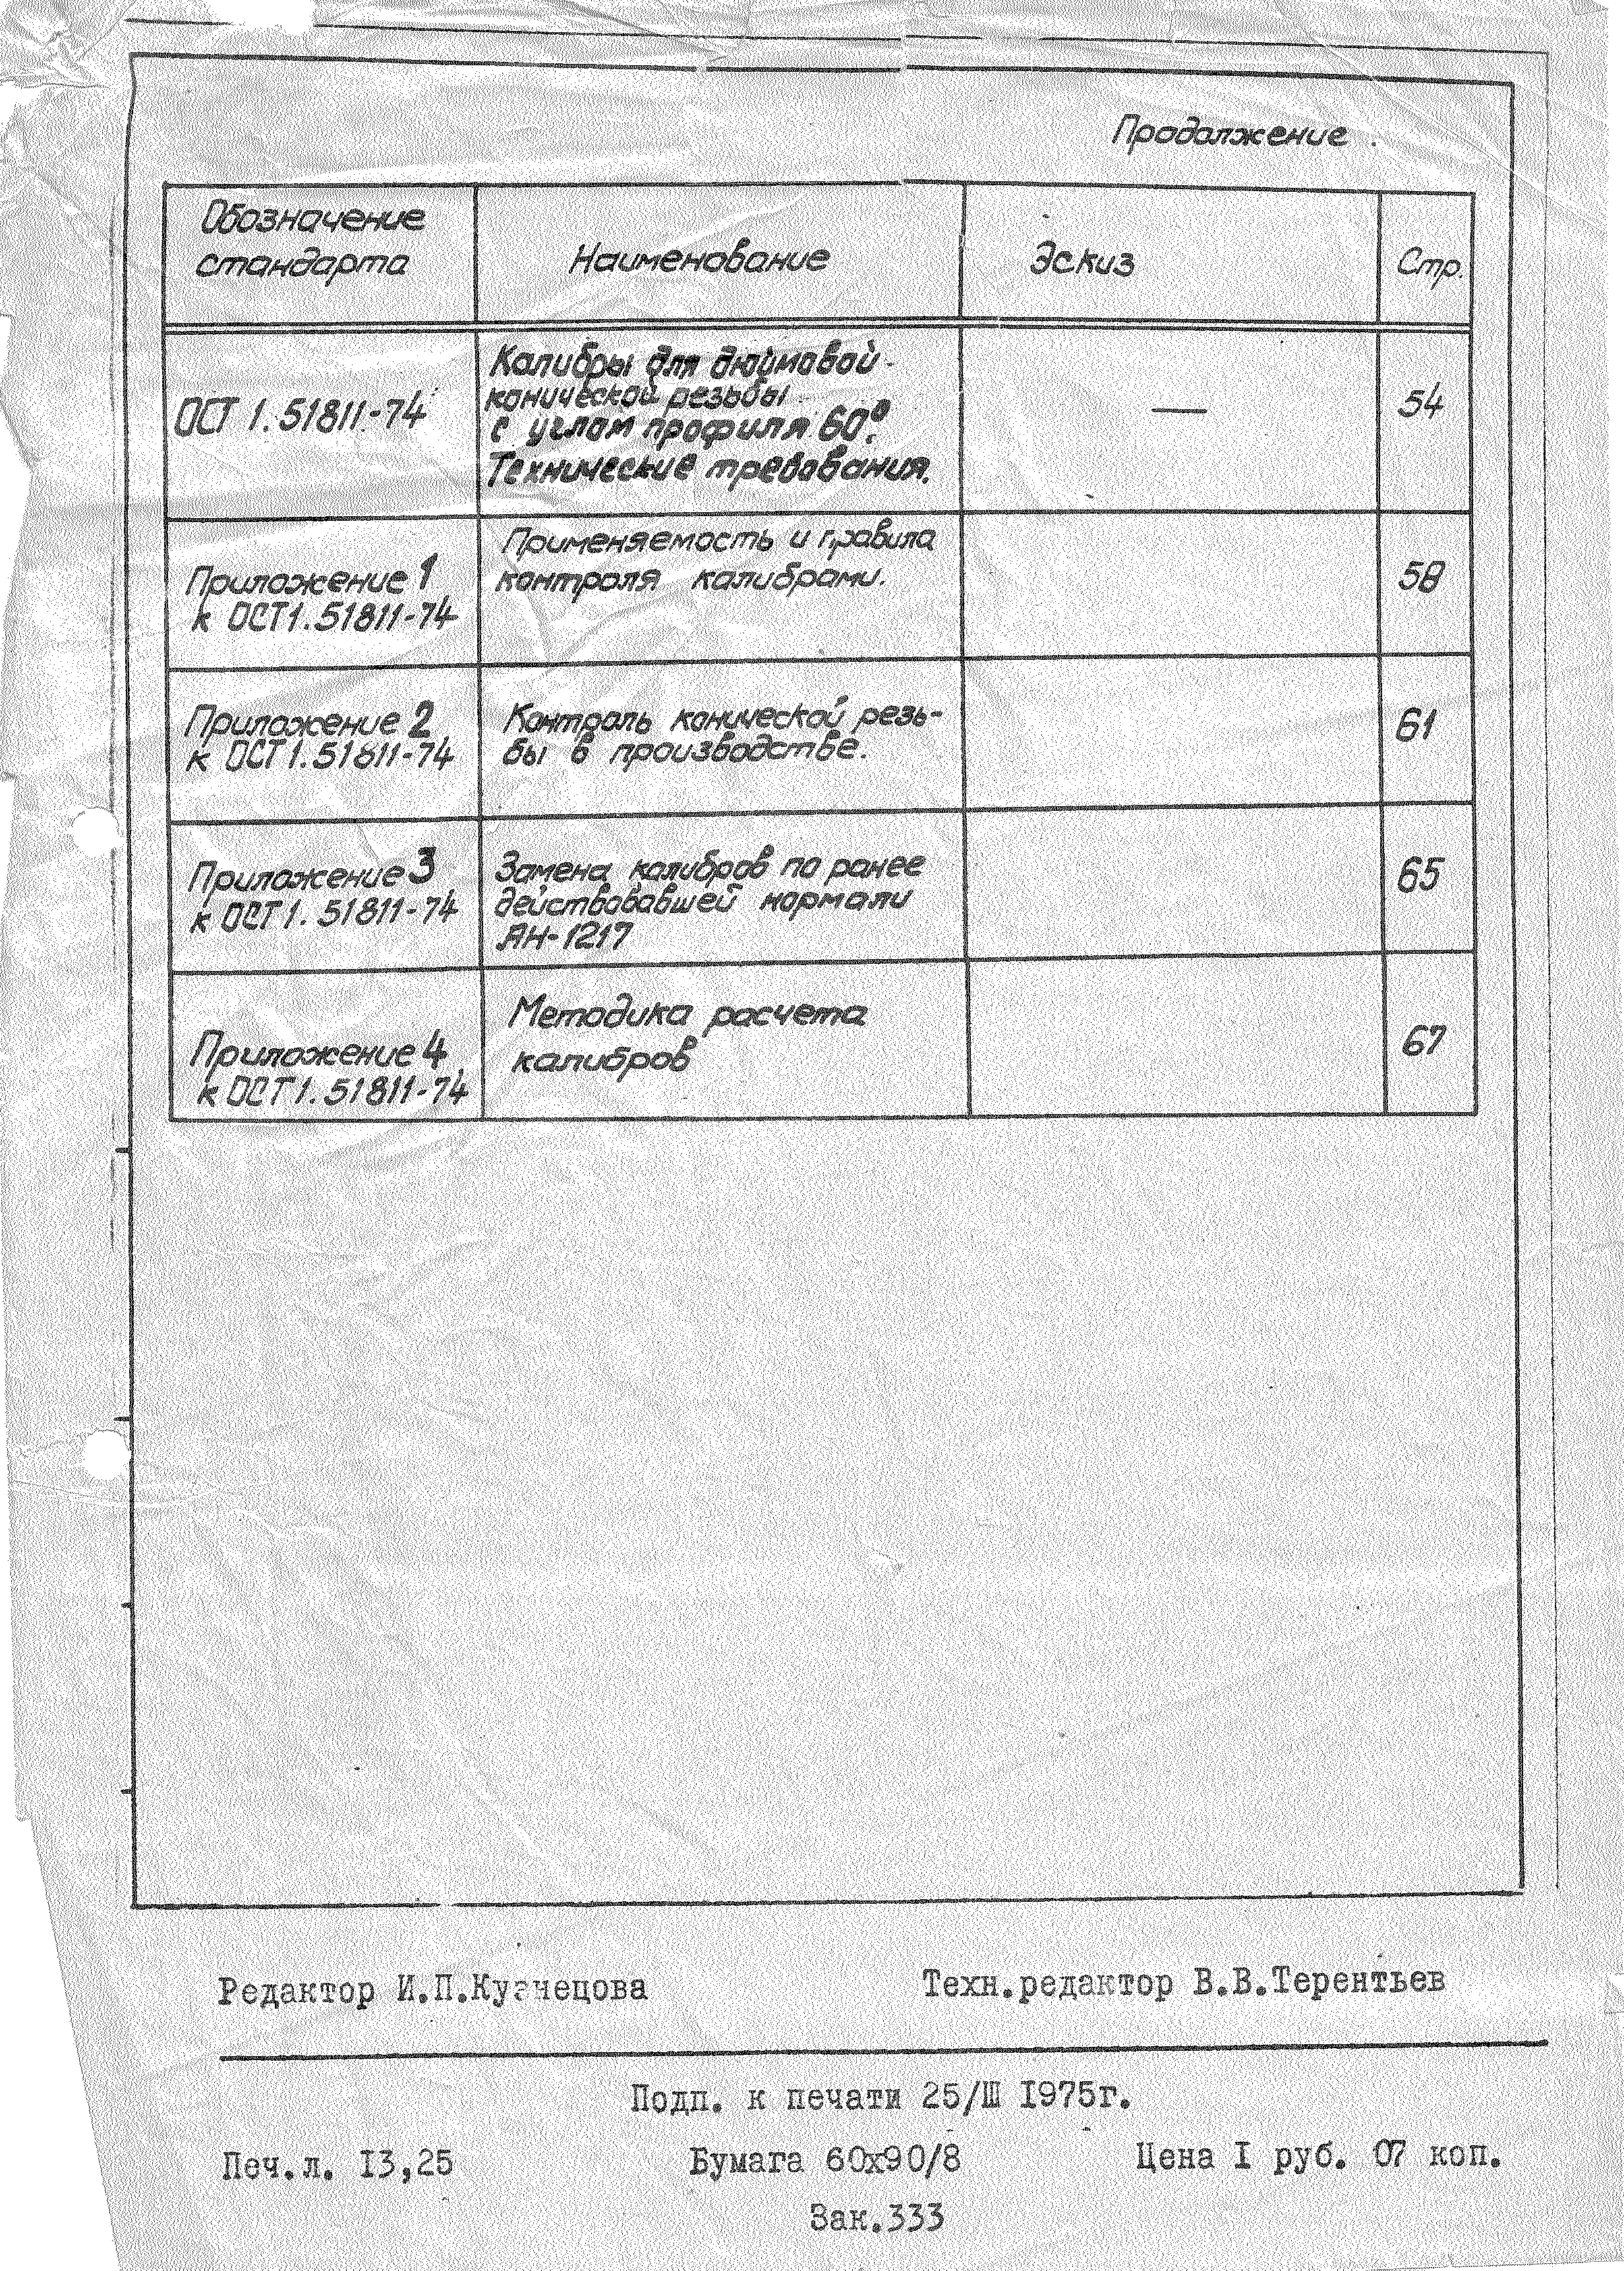 Продолжение.
Обозначение
стандарта
Наименование
Эскиз
Стр.
ОСТ 1.51811-74
Калибры для дюймовой
конической резьбы
с углом профиля 60°.
Технические требования.
—
54
Приложение 1
к ОСТ 1.51811-74
Применяемость и правила
контроля калибрами.
58
Приложение 2
к ОСТ 1.51811-74
Контроль конической резь-
бы в производстве.
61
Приложение 3
к ОСТ 1.51811-74
Замена калибров по ранее
действовавшей нормали
АН-1217
65
Приложение 4
к ОСТ 1.51811-74
Методика расчета
калибров
67
Редактор И.П.Кузнецова
Техн.редактор В.В.Терентьев
Подп. к печати 25/III 1975г.
Печ.л. 13,25
Бумага 60х90/8
Цена 1 руб. 07 коп.
Зак.333